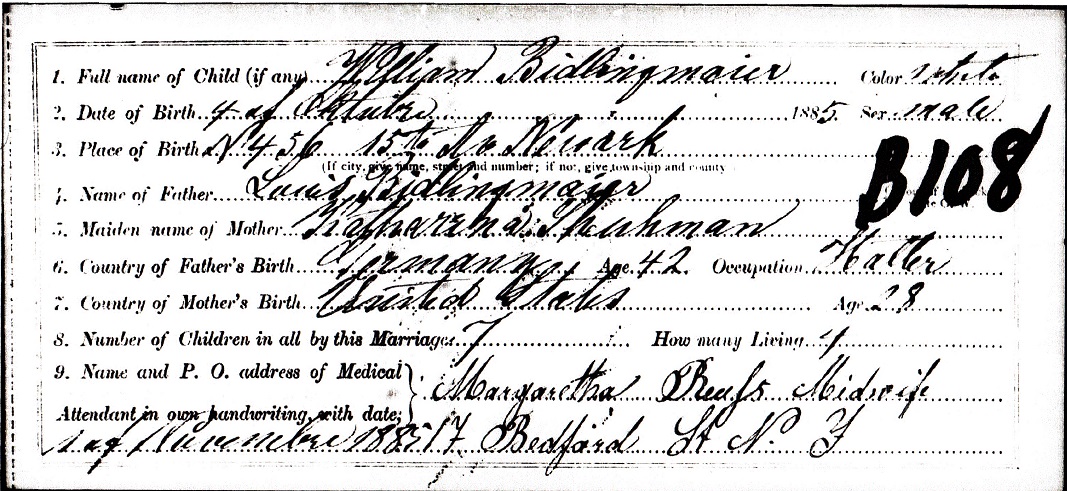 1. Full name of Child (if any) William Bidlingmaier Color white
2. Date of Birth 4 of Octubre 1885 Sex male
3. Place of Birth N 456 15th Av Newark
(If city, give name, street and number; if not, give township and county
B108
4. Name of Father Louis Bidlingmaier
5. Maiden name of Mother Katharena Shuhman
6. Country of Father's Birth Germany Age 42 Occupation Hatter
7. Country of Mother's Birth United States Age 28
8. Number of Children in all by this Marriage 7 How many Living 4
9. Name and P. O. address of Medical Margaretha Reuſs Midwife
Attendant in own handwriting, with date;
1 of November 1885 17 Bedford St N.